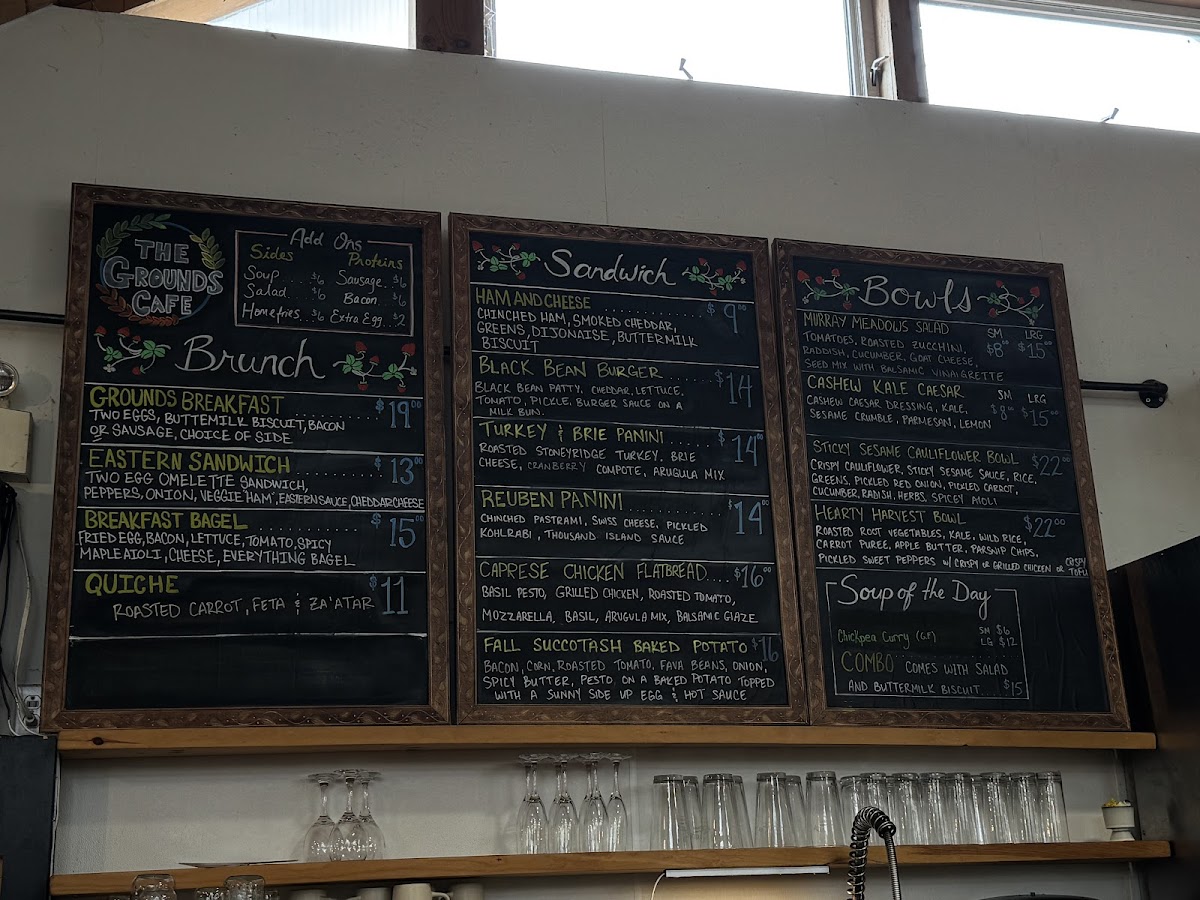 THE
GROUNDS
CAFE
Add Ons
Sides Proteins
Soup... $6 Sausage.. $6
Salad.. $6 Bacon.. $6
Homefries.. $6 Extra Egg... $2
Brunch
GROUNDS BREAKFAST ........ $19.00
TWO EGGS, BUTTEMILK BISCUIT, BACON
OR SAUSAGE, CHOICE OF SIDE
EASTERN SANDWICH ........ $13.00
TWO EGG OMELETTE SANDWICH,
PEPPERS, ONION, VEGGIE "HAM", EASTERN SAUCE, CHEDDAR CHEESE
BREAKFAST BAGEL ........ $15.00
FRIED EGG, BACON, LETTUCE, TOMATO, SPICY
MAPLE AIOLI, CHEESE, EVERYTHING BAGEL
QUICHE $11
ROASTED CARROT, FETA & ZA'ATAR
Sandwich
HAM AND CHEESE ........ $9.00
CHINCHED HAM, SMOKED CHEDDAR,
GREENS, DIJONAISE, BUTTERMILK
BISCUIT
BLACK BEAN BURGER ........ $14
BLACK BEAN PATTY, CHEDDAR, LETTUCE,
TOMATO, PICKLE, BURGER SAUCE ON A
MILK BUN.
TURKEY & BRIE PANINI ........ $14.00
ROASTED STONEYRIDGE TURKEY, BRIE
CHEESE, CRANBERRY COMPOTE, ARUGULA MIX
REUBEN PANINI ........ $14.00
CHINCHED PASTRAMI, SWISS CHEESE, PICKLED
KOHLRABI, THOUSAND ISLAND SAUCE
CAPRESE CHICKEN FLATBREAD.... $16.00
BASIL PESTO, GRILLED CHICKEN, ROASTED TOMATO,
MOZZARELLA, BASIL, ARUGULA MIX, BALSAMIC GLAZE
FALL SUCCOTASH BAKED POTATO $16
BACON, CORN, ROASTED TOMATO, FAVA BEANS, ONION,
SPICY BUTTER, PESTO, ON A BAKED POTATO TOPPED
WITH A SUNNY SIDE UP EGG & HOT SAUCE
Bowls
MURRAY MEADOWS SALAD SM LRG
TOMATOES, ROASTED ZUCCHINI, $8.00 $15.00
RADDISH, CUCUMBER, GOAT CHEESE,
SEED MIX WITH BALSAMIC VINAIGRETTE
CASHEW KALE CAESAR SM LRG
CASHEW CAESAR DRESSING, KALE, $8.00 $15.00
SESAME CRUMBLE, PARMESAN, LEMON
STICKY SESAME CAULIFLOWER BOWL $22.00
CRISPY CAULIFLOWER, STICKY SESAME SAUCE, RICE,
GREENS, PICKLED RED ONION, PICKLED CARROT,
CUCUMBER, RADISH, HERBS, SPICEY AIOLI
HEARTY HARVEST BOWL ........ $22.00
ROASTED ROOT VEGETABLES, KALE, WILD RICE,
CARROT PUREE, APPLE BUTTER, PARSNIP CHIPS,
PICKLED SWEET PEPPERS W/ CRISPY OR GRILLED CHICKEN OR CRISPY TOFU
Soup of the Day
Chickpea Curry (G.F) SM $6
LG $12
COMBO COMES WITH SALAD
AND BUTTERMILK BISCUIT.... $15